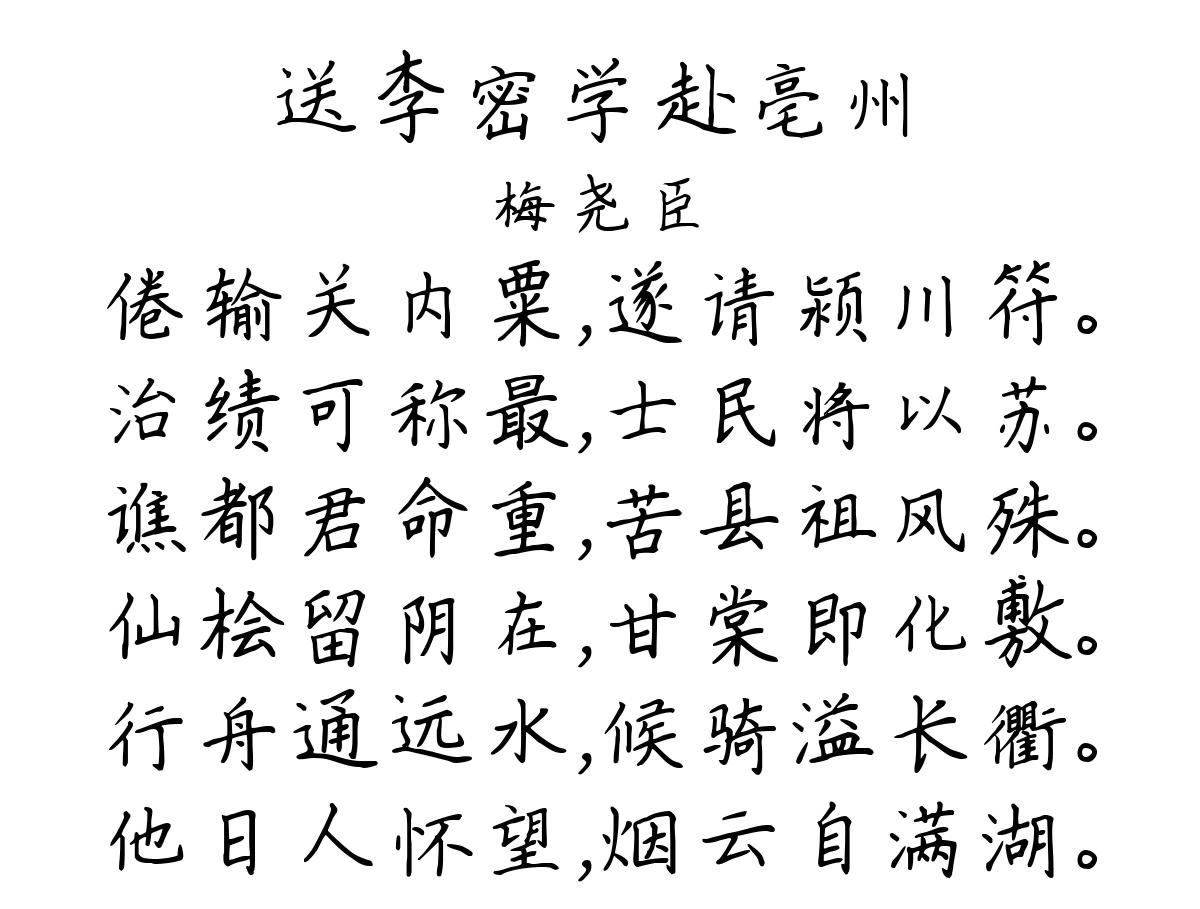 送李密学赴亳州
梅尧臣
倦输关内粟,遂请颍川符。
治绩可称最,士民将以苏。
谯都君命重,苦县祖风殊。
仙桧留阴在,甘棠即化敷。
行舟通远水,候骑溢长衢。
他日人怀望,烟云自满湖。